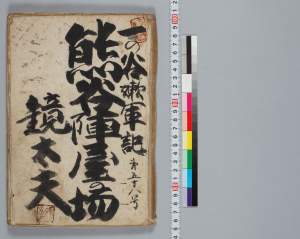 一の谷嫩軍記
第五十八号
熊谷陣屋の場
鏡太夫